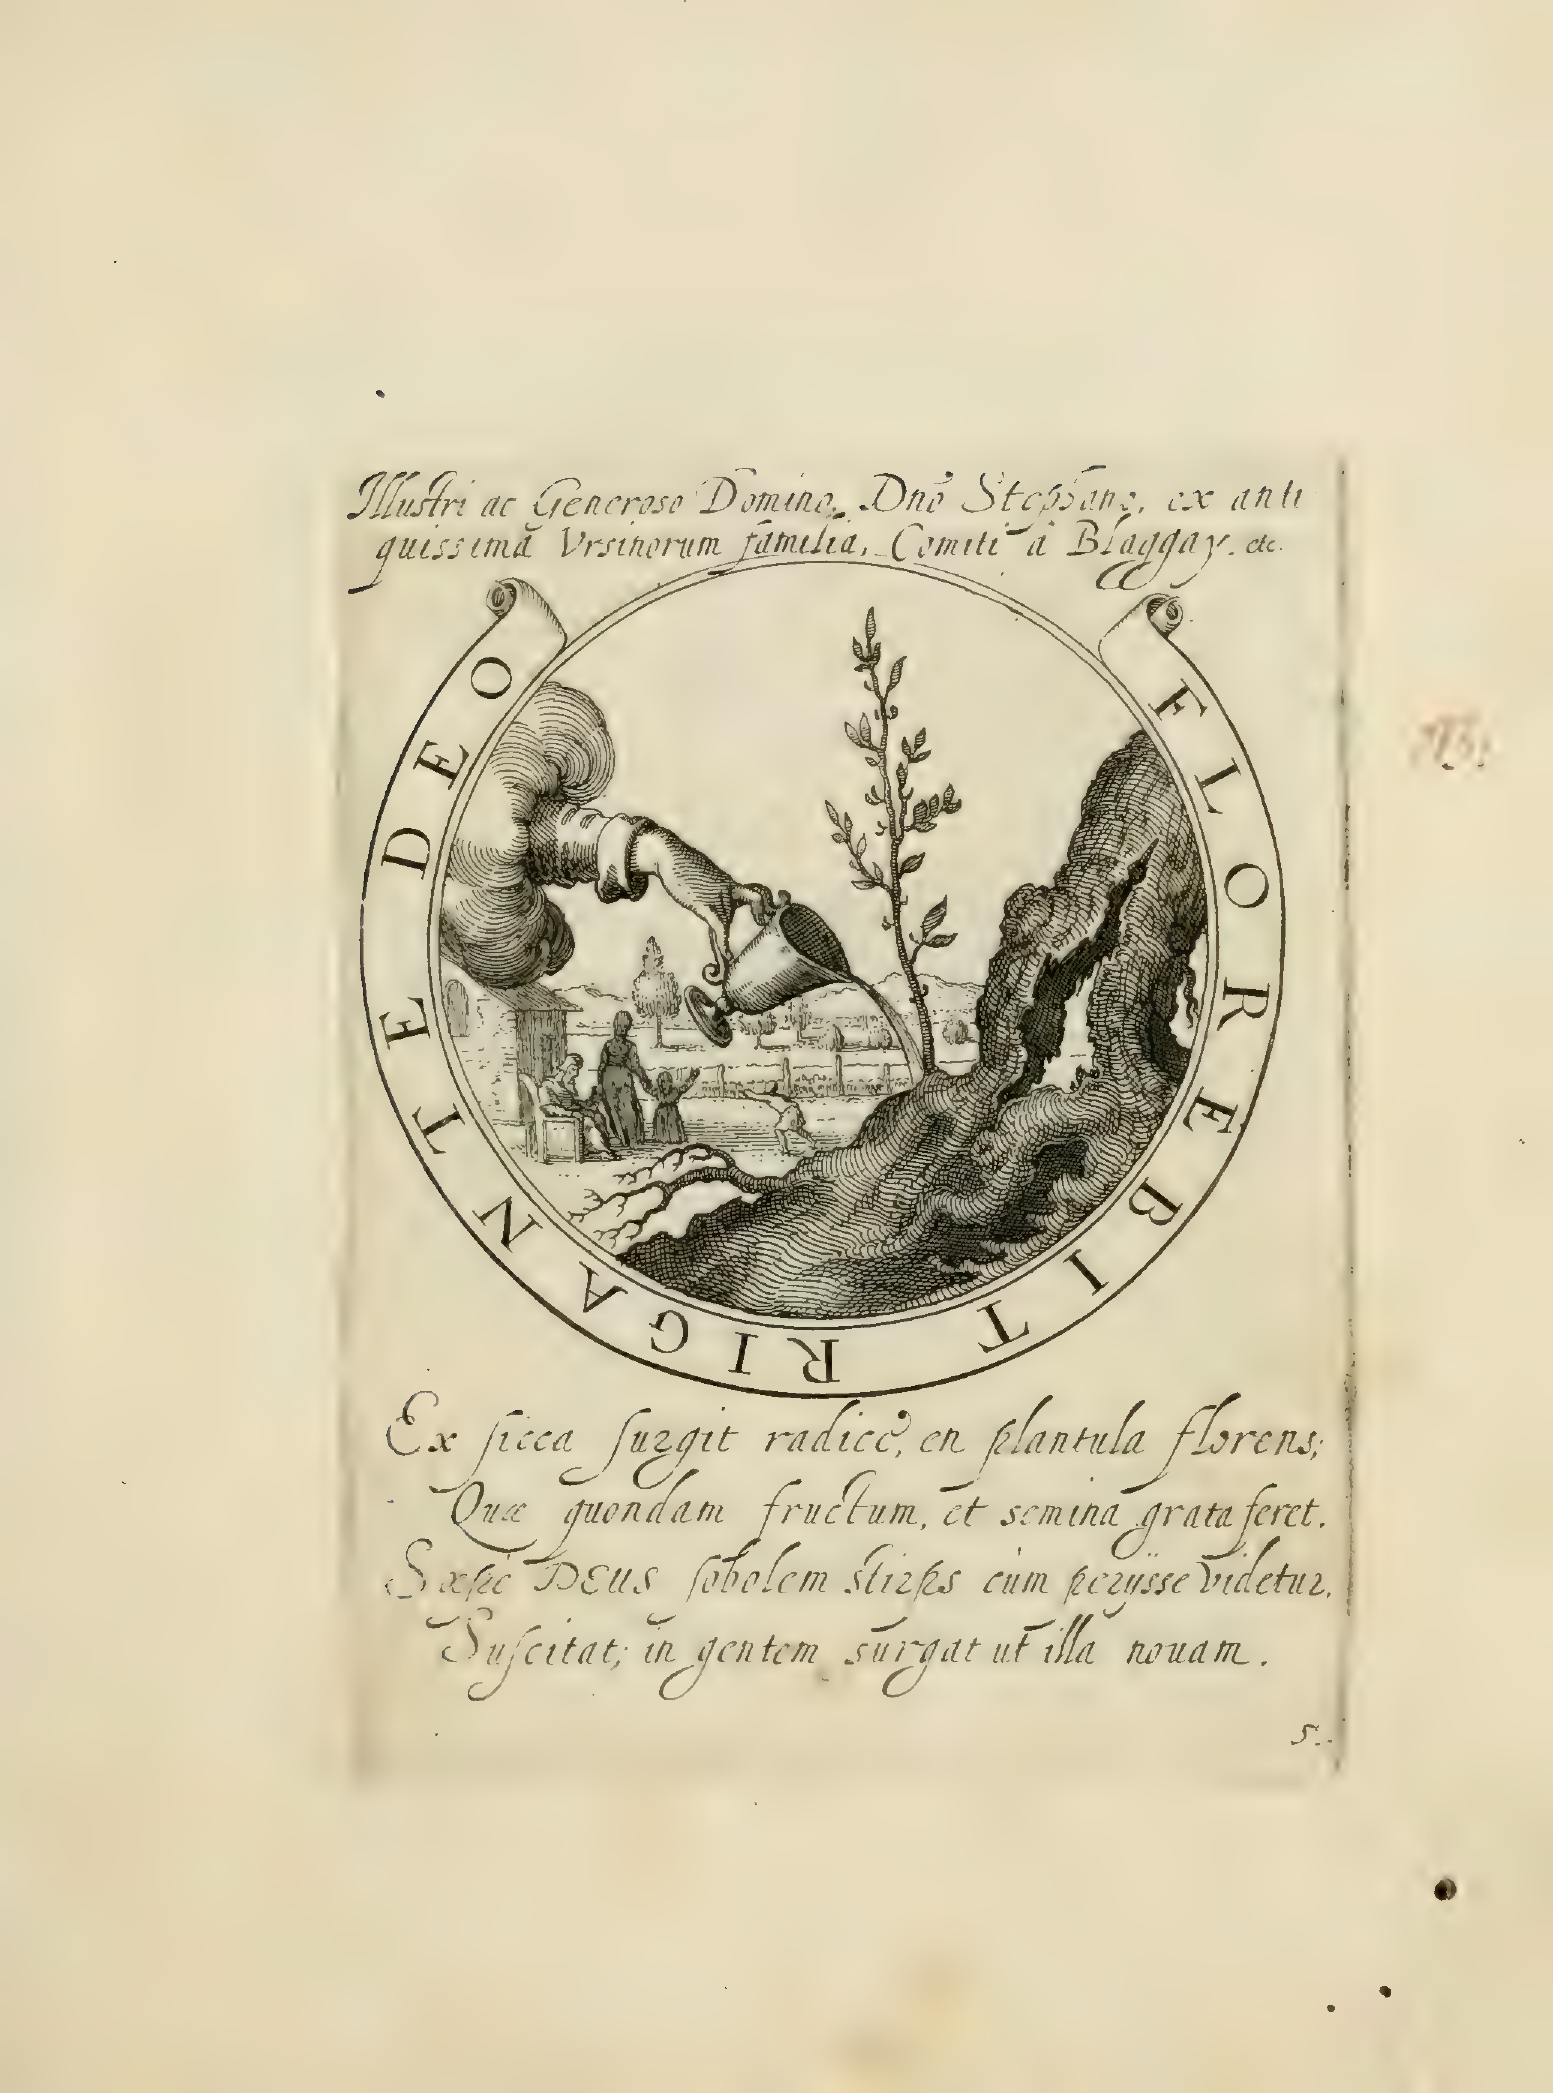 Illustri ac Generoso Domino, Dnō Stephano, ex anti
quissimâ Vrsinorum familia, Comiti à Blaggay. etc.
FLOREBIT RIGANTE DEO
Ex ſicca ſurgit radice, en plantula florens;
Quæ quondam fructum, et semina grata feret.
Sæpe DEUS ſobolem stirps cùm perijsse videtur.
Suſcitat; in gentem surgat ut illa nouam.
5.